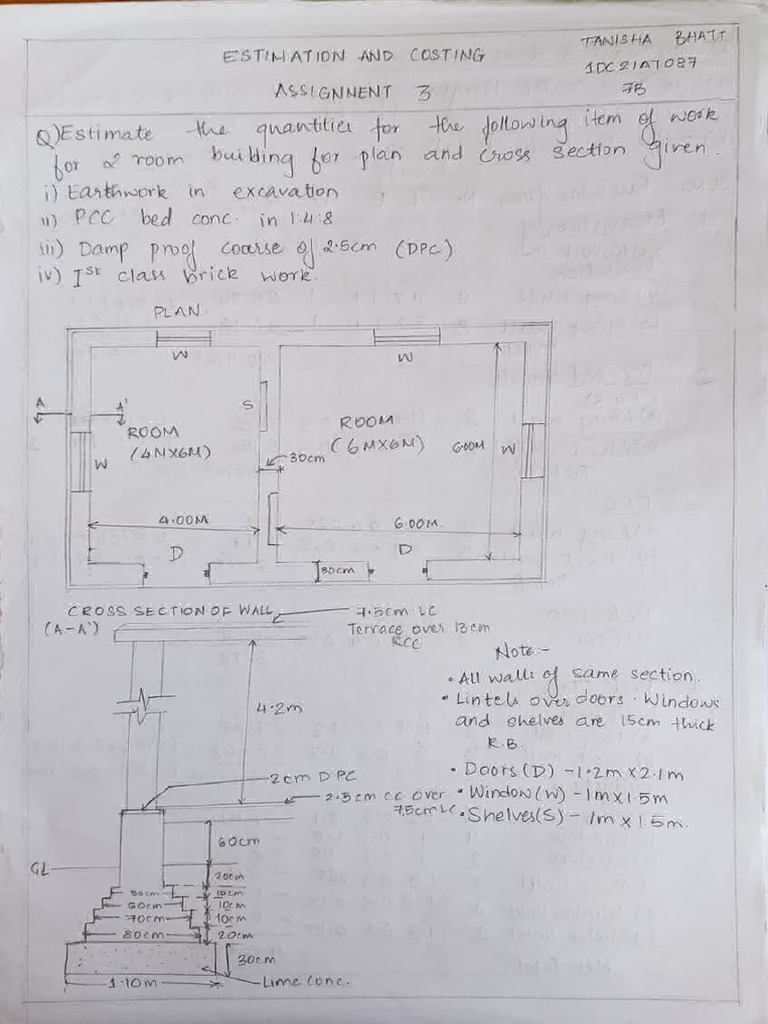 ESTIMATION AND COSTING
TANISHA BHATT
1DC21AT087
7B
ASSIGNMENT 3
Q) Estimate the quantities for the following item of work
for 2 room building for plan and cross section given.
i) Earthwork in excavation
ii) PCC bed conc. in 1:4:8
iii) Damp proof coarse of 2.5cm (DPC)
iv) Ist class brick work.
PLAN.
W
W
A
A'
S
ROOM
(4MX6M)
ROOM
(6MX6M)
6.00M
W
W
30cm
4.00M
6.00M.
D
D
30cm
CROSS SECTION OF WALL
(A-A')
7.5cm LC
Terrace over 13cm
RCC
Note:-
• All walls of same section.
• Lintels over doors. Windows
and shelves are 15cm thick
R.B
4.2m
2cm DPC
• Doors (D) - 1.2m x 2.1m
2.5cm CC over
7.5cm LC
• Window(W) - 1m x 1.5m
• Shelves(S) - 1m x 1.5m.
60cm
GL
20cm
50cm
10cm
60cm
10cm
70cm
10cm
80cm
20cm
30cm
1.10m
Lime conc.